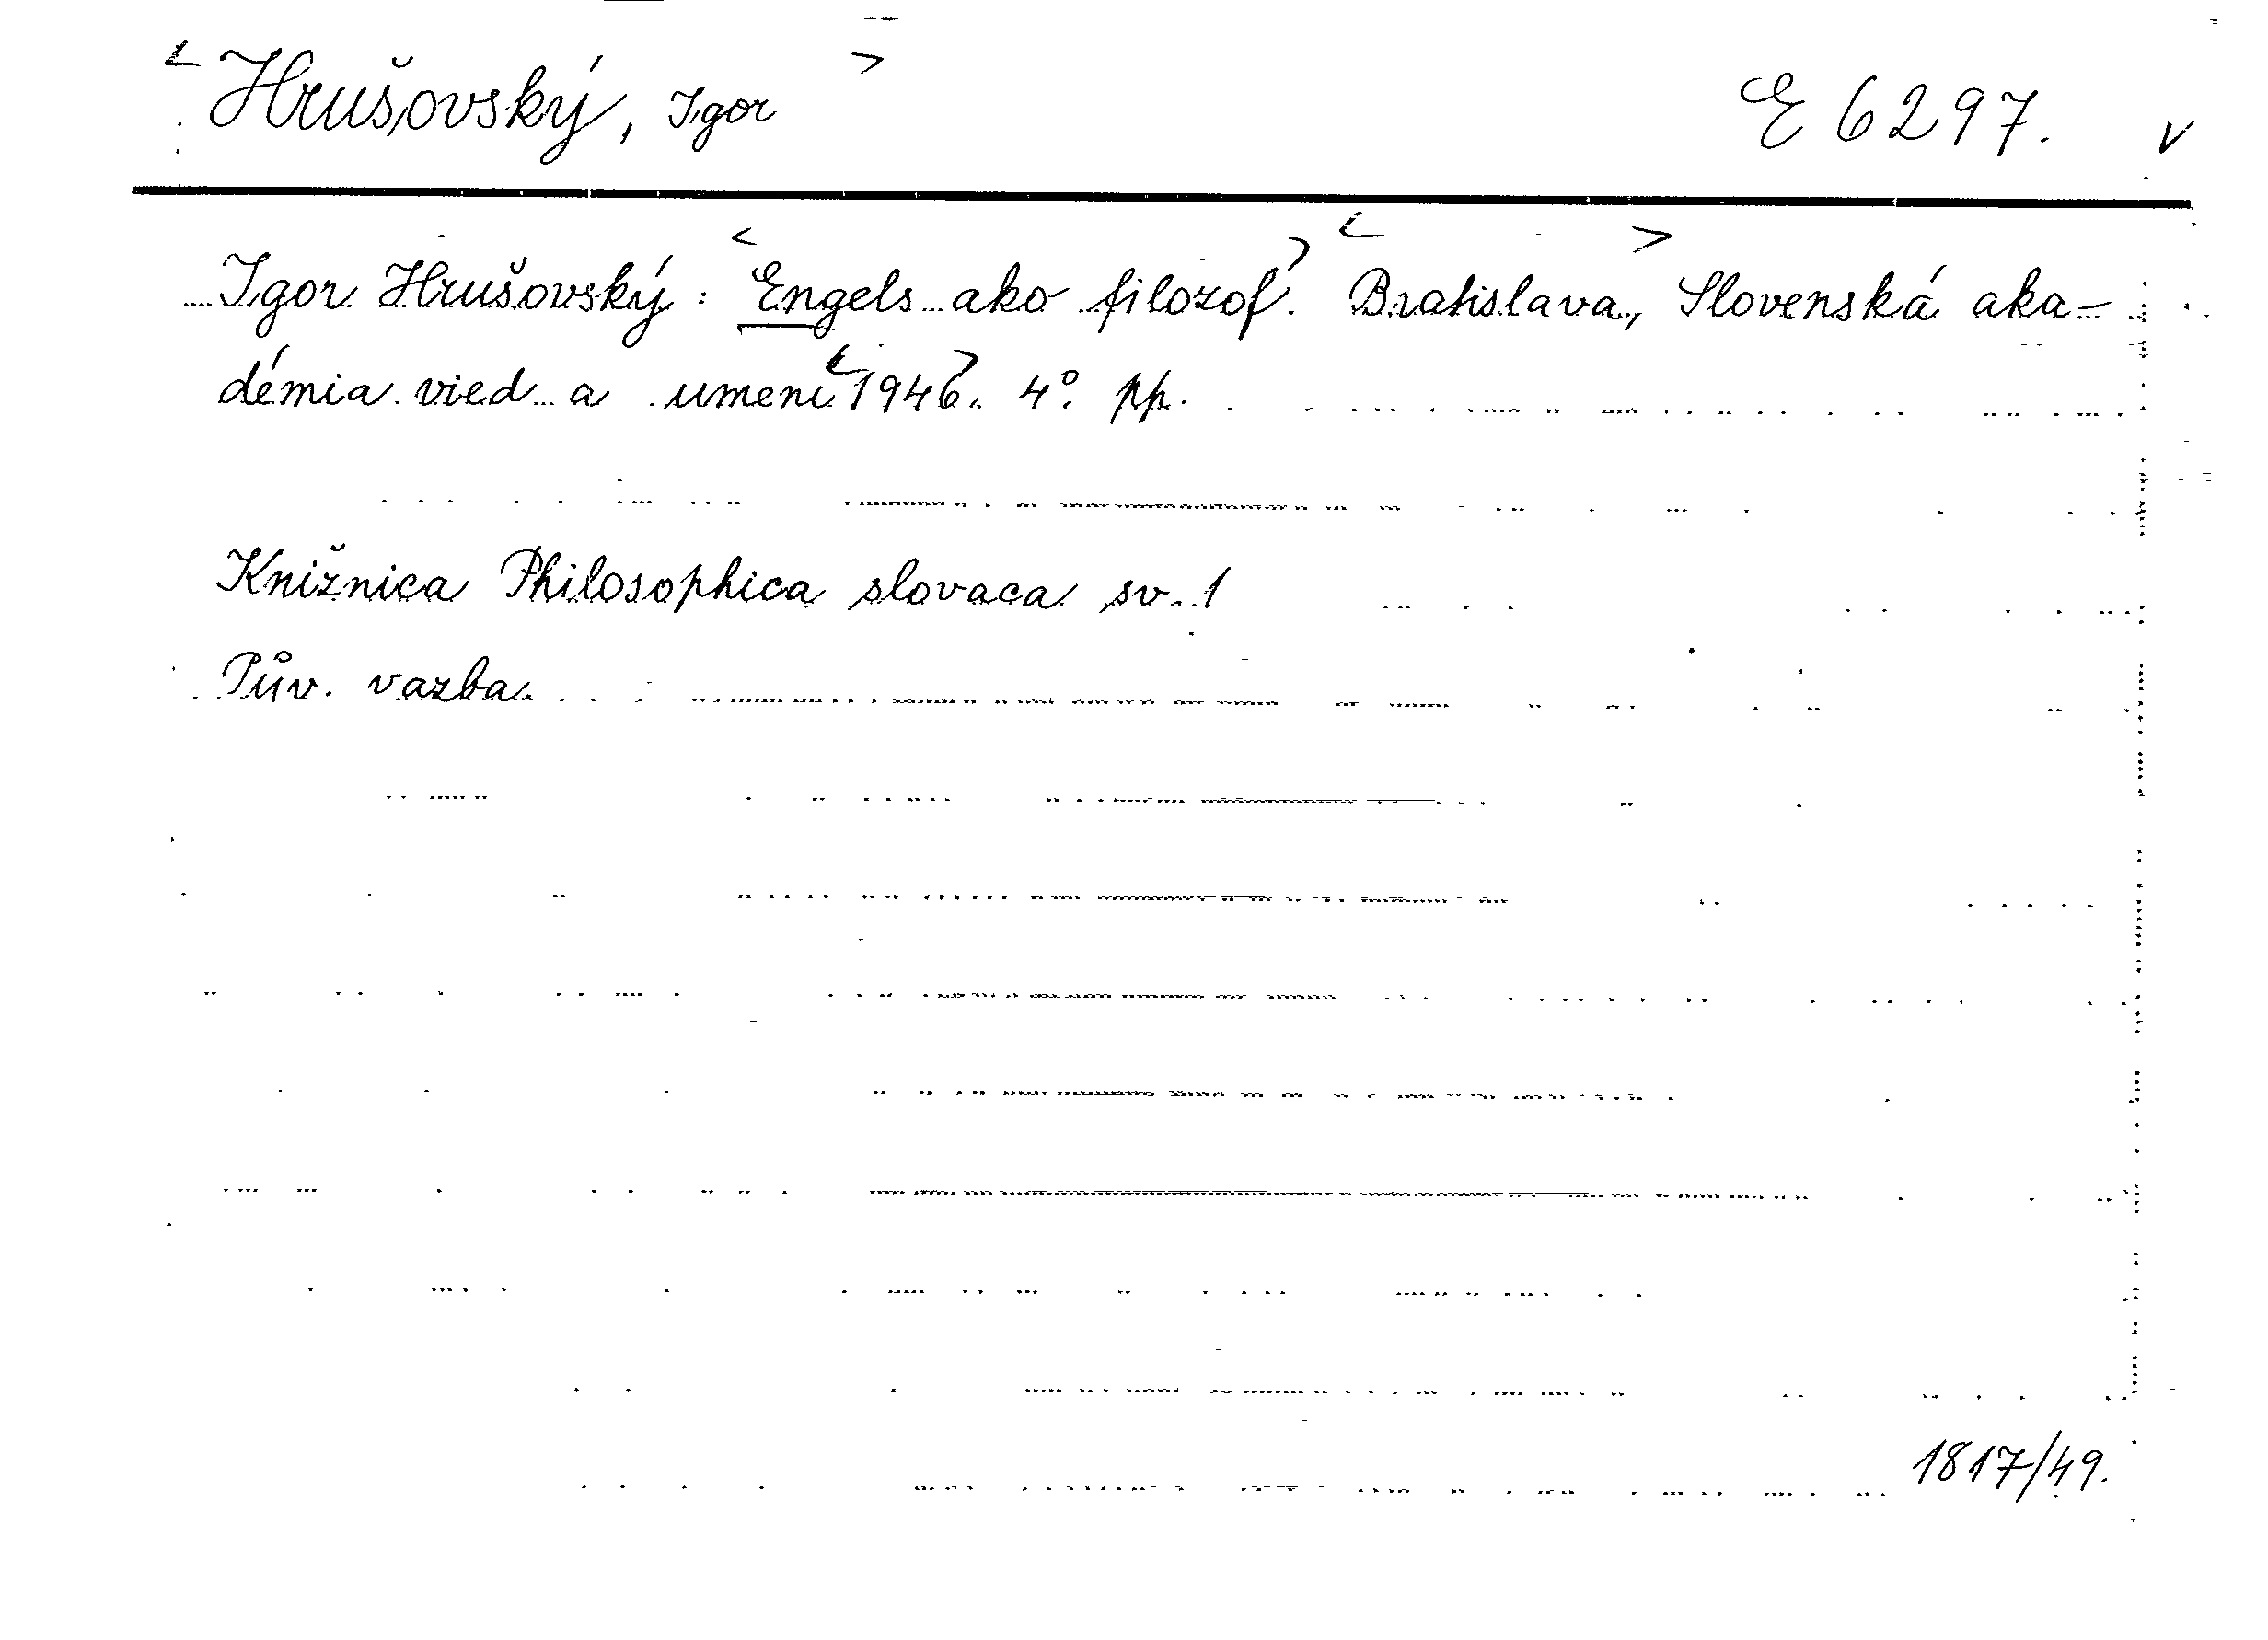 < Hrušovský, Igor > E 6297. v
Igor Hrušovský: <Engels ako filozof>. <Bratislava>, Slovenská aka-
démia vied a umení <1946>. 4°. pp.
Knižnica Philosophica slovaca sv. 1
Pův. vazba.
1817/49.